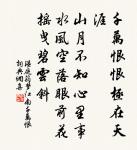 千萬恨恨極在天
涯
山月不知心裏事
水風空落眼前花
搖曳碧雲斜
溫庭筠夢江南千萬恨